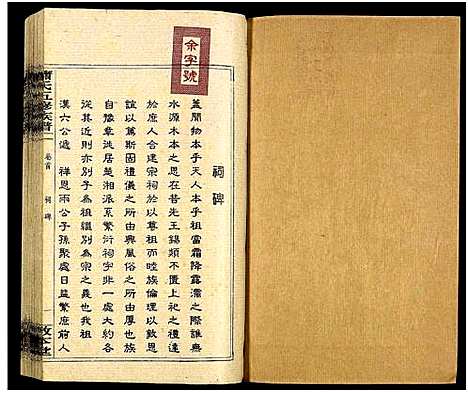 余字號
祠碑
蓋聞物本乎天人本乎祖當霜降露濡之際誰無
水源木本之思在昔先王錫類不置上祀之禮達
於庶人合建宗祠於以尊祖而睦族倫理以敦恩
誼以篤斯固禮儀之所由興風俗之所由厚也族
自豫章徙居楚湘派系繁衍祠宇非一處大約各
從其近則亦別子為祖繼別為宗之義也我祖
漢六公遞 祥恩兩公子孫聚處日益繁庶前人
氏五修族譜
卷首 祠碑 一